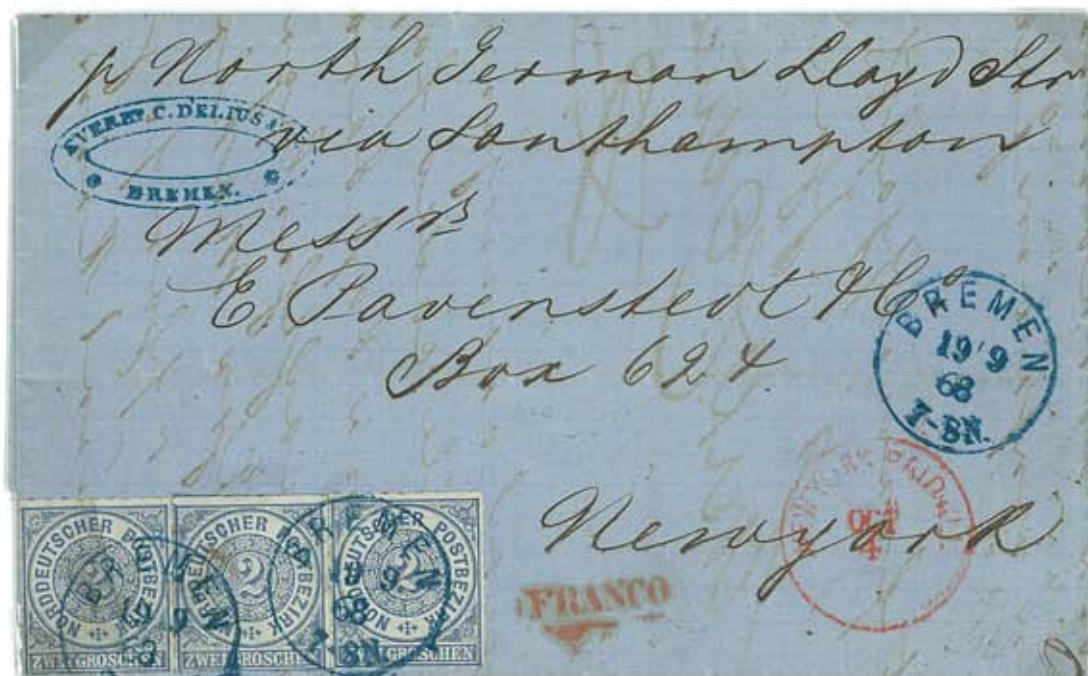 p North German Lloyd Str
via Southampton
C. DELIUS
BREMEN.
Messrs
E. Pavenstedt & Co
Box 624
BREMEN
19 9
68
7-8N.
Newyork
PAID
OCT
4
FRANCO
NORDDEUTSCHER POSTBEZIRK
2
ZWEI GROSCHEN
NORDDEUTSCHER POSTBEZIRK
2
ZWEI GROSCHEN
NORDDEUTSCHER POSTBEZIRK
2
ZWEI GROSCHEN
BREMEN
19 9
68
BREMEN
19 9
68
7-8N.